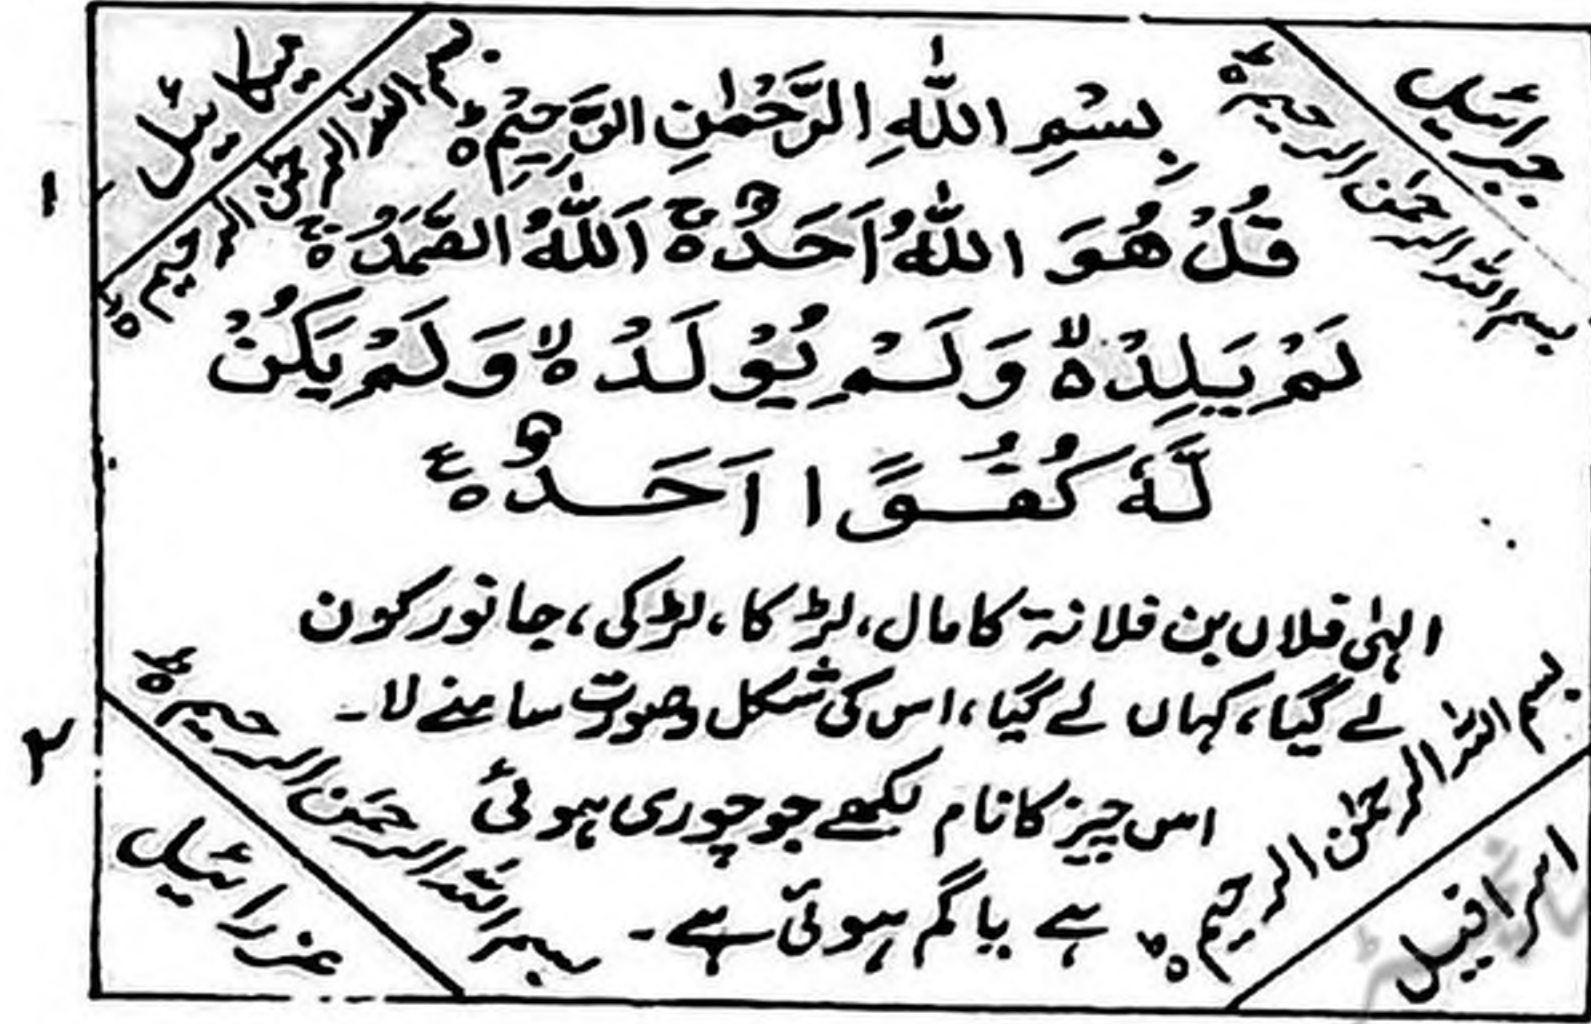 جبرائیل
بسم اللہ الرحمٰن الرحیم ۵ط
میکائیل
بسم اللہ الرحمٰن الرحیم ۵ط
بِسْمِ اللّٰهِ الرَّحْمٰنِ الرَّحِیْمِ ۵ط
قُلْ هُوَ اللّٰهُ اَحَدٌ ۵ج اَللّٰهُ الصَّمَدُ ۵ج
لَمْ یَلِدْ ۵لا وَ لَمْ یُوْلَدْ ۵لا وَ لَمْ یَکُنْ
لَّهٗ کُفُوًا اَحَدٌ ۵ع
الہٰی فلاں بن فلانۃ کا مال، لڑکا، لڑکی، جانور کون
لے گیا، کہاں لے گیا، اس کی شکل و صورت سامنے لا۔
اس چیز کا نام لکھے جو چوری ہوئی
ہے یا گم ہوئی ہے۔
بسم اللہ الرحمٰن الرحیم ۵ط
اسرافیل
بسم اللہ الرحمٰن الرحیم ۵ط
عزرائیل
۱
۲